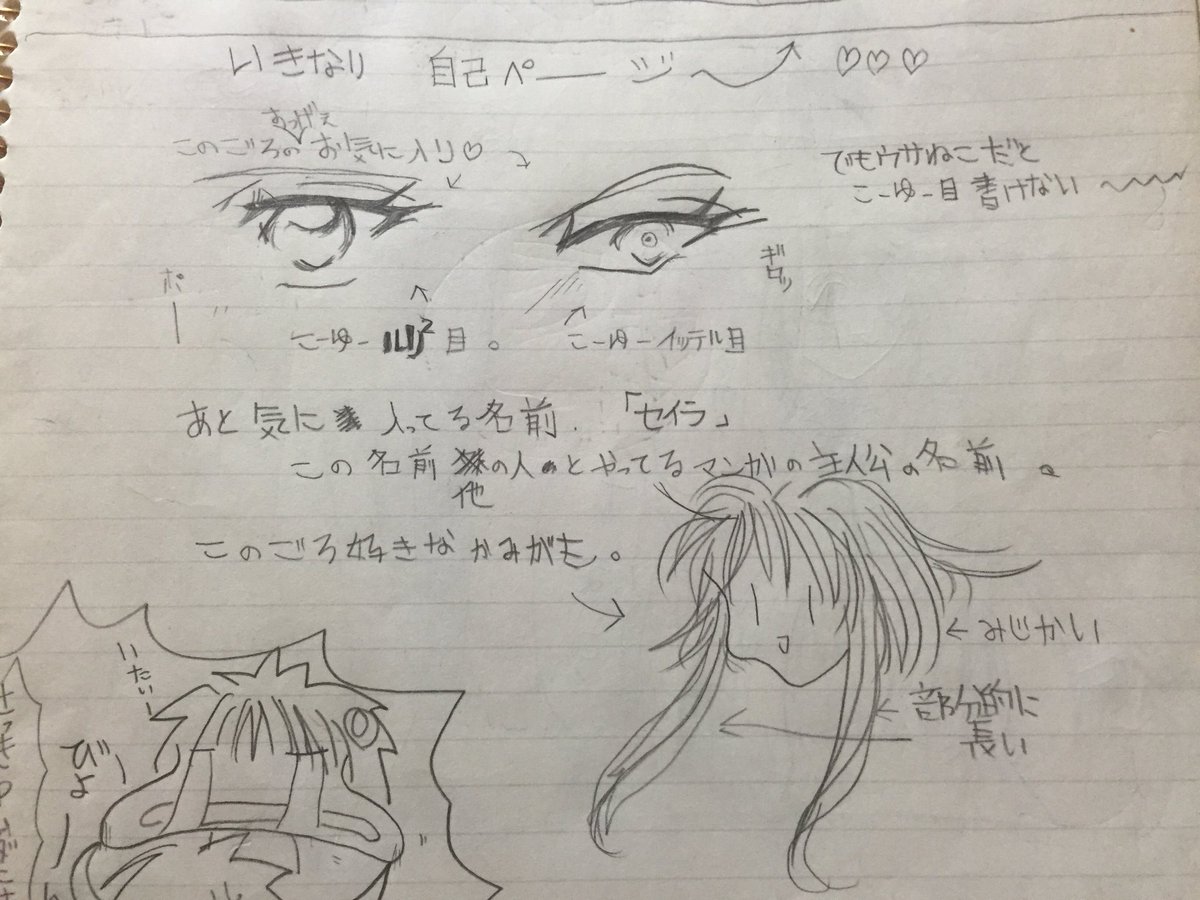 いきなり 自己ページ〜 ♡♡♡
すっげぇ
このごろのお気に入り♡
でもウサねこだと
こーゆー目書けない
ポー
ギロッ
こーゆー 目。
こーゆーイッテル目
あと気に入ってる名前.「セイラ」
この名前の人とやってるマンガの主人公の名前。
他
このごろ好きなかみがた。
←みじかい
←部分的に
長い
いたいー
びよーん